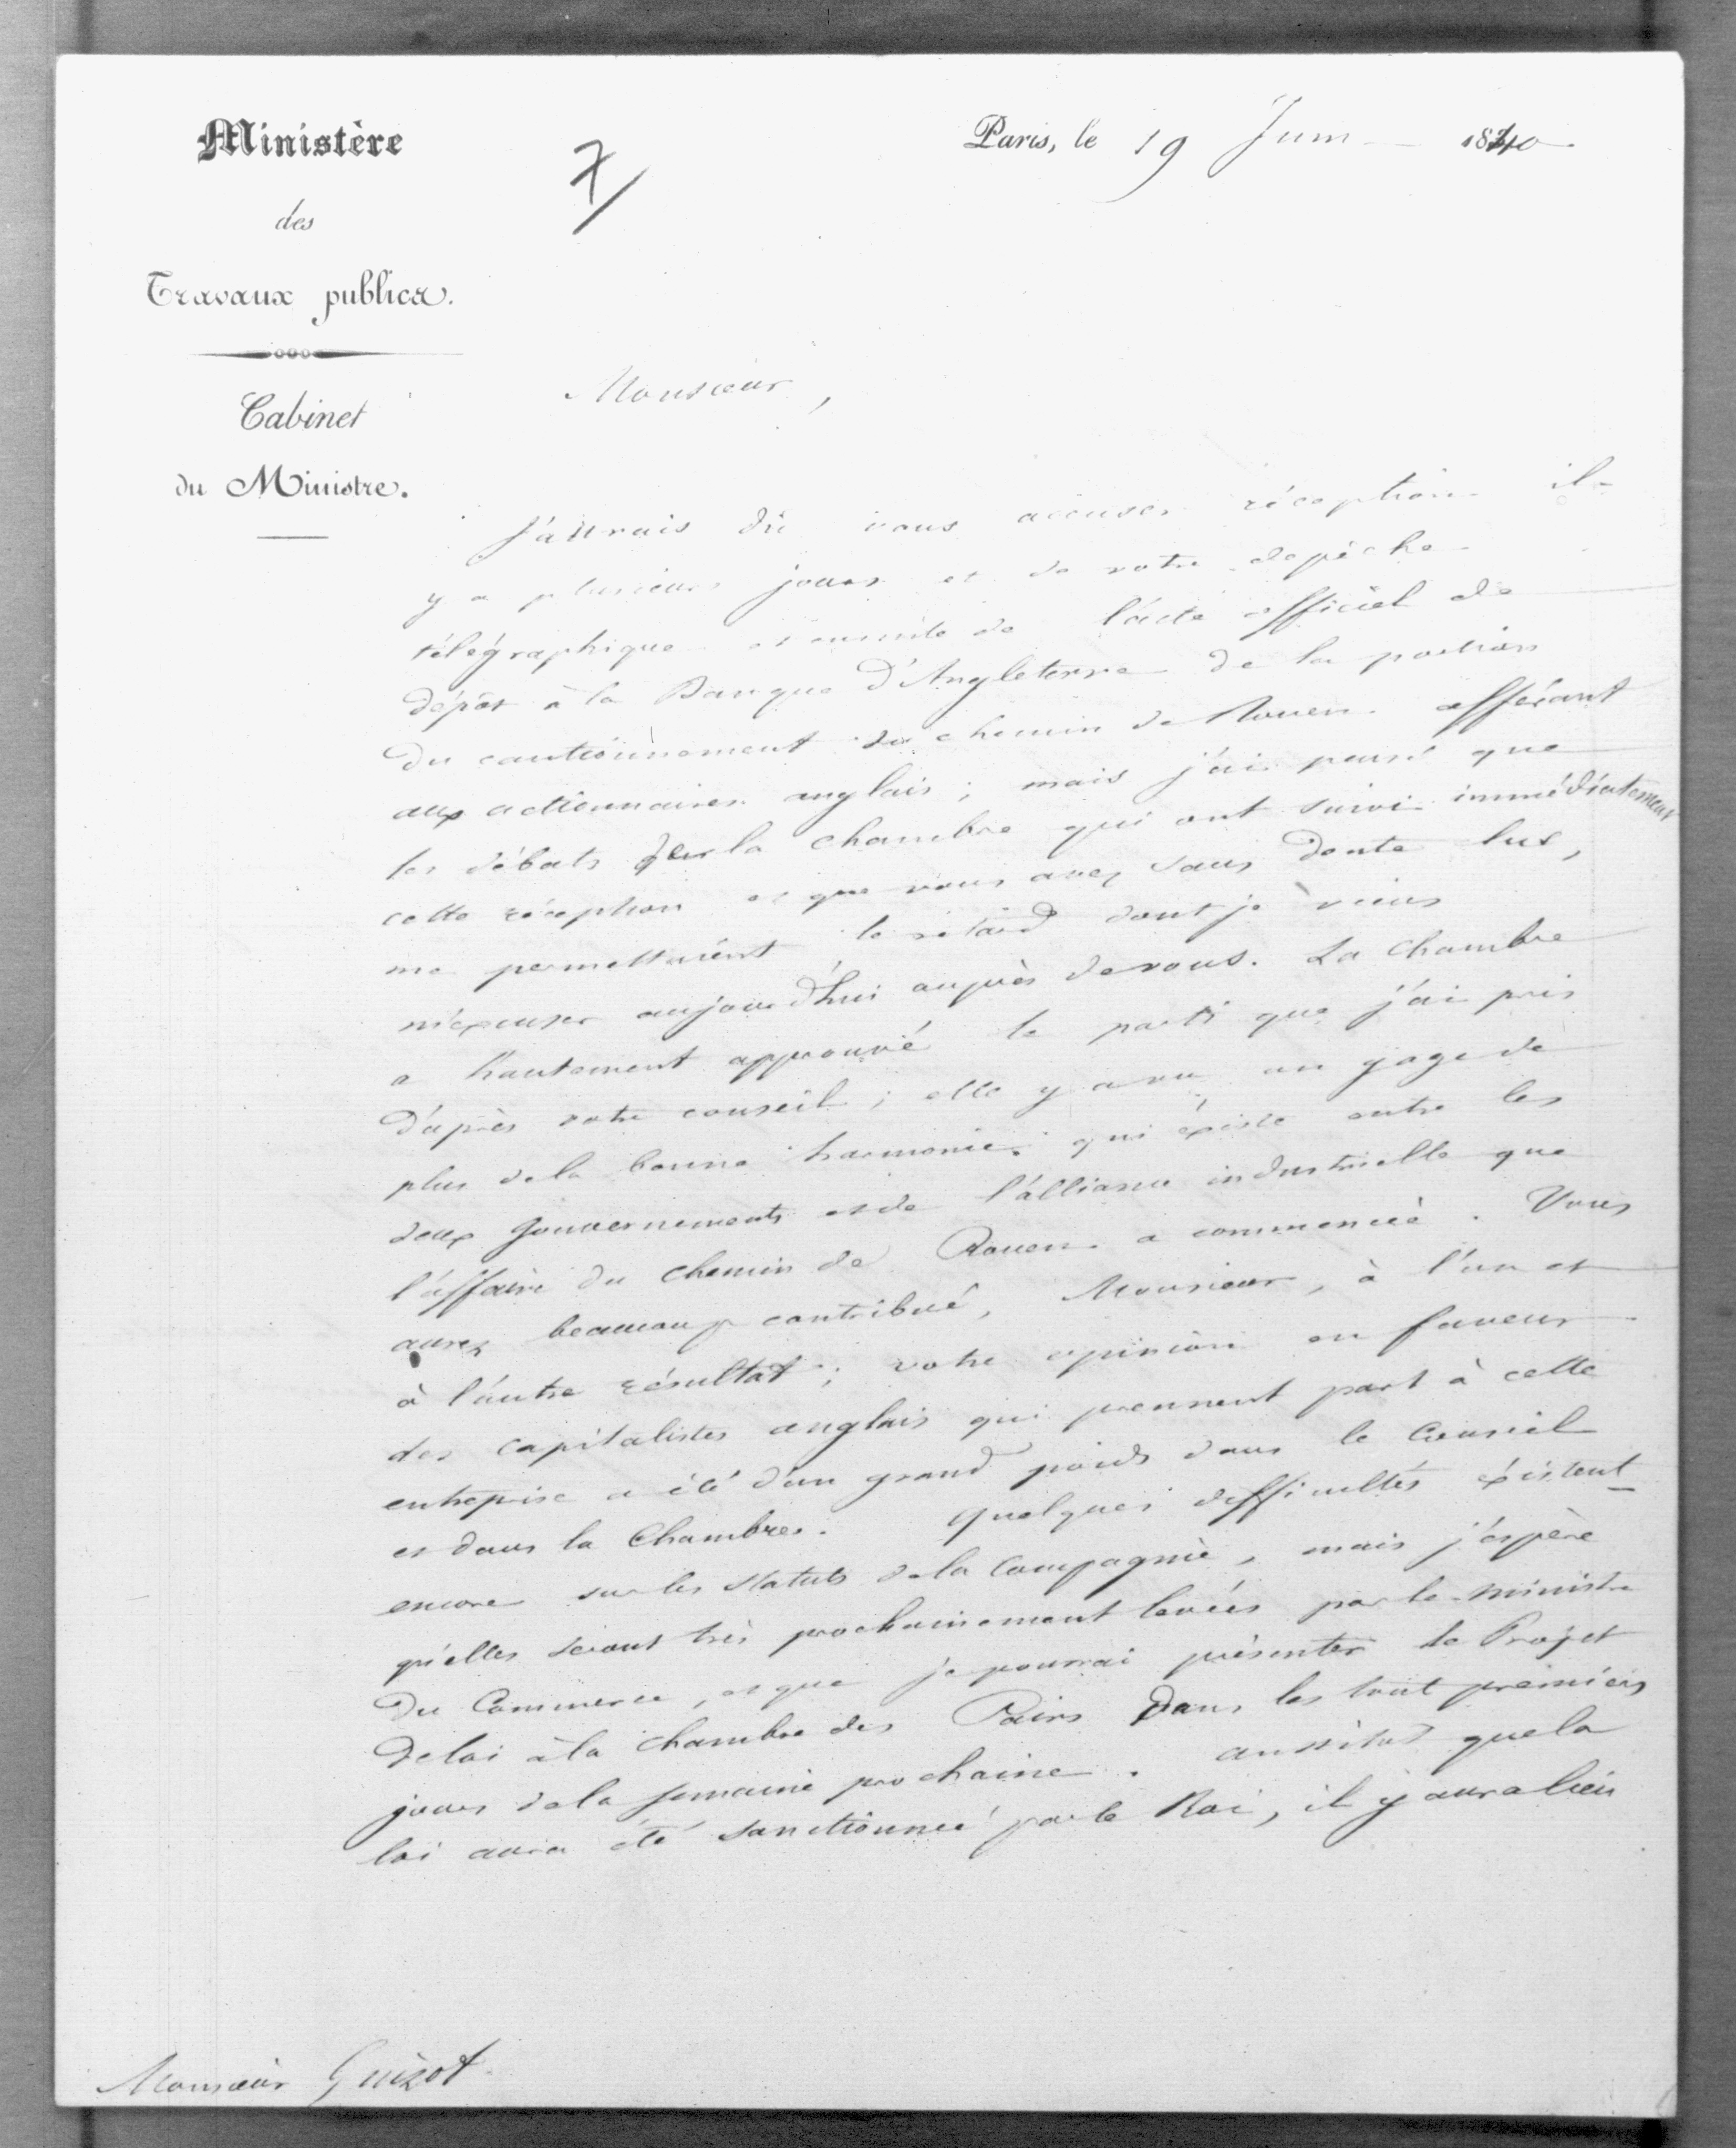 Ministère
des
Travaux publics.
Cabinet
du Ministre.
7
Paris, le 19 Juin 1840
Monsieur,
J'aurais dû vous accuser réception il
y a plusieurs jours et de votre dépèche
télégraphique et ensuite de l'acte officiel de
dépôt à la Banque d'Angleterre de la portion
du cautionnement du chemin de Rouen afférant
aux actionnaires anglais ; mais j'ai pensé que
les débats de la chambre qui ont suivi immédiatement
cette réception et que vous avez sans doute lus,
me permettaient le retard dont je viens
m'excuser aujourd'hui auprès de vous. La Chambre
a hautement approuvé le parti que j'ai pris
d'après votre conseil ; elle y a vu un gage de
plus de la bonne harmonie qui existe entre les
deux gouvernements et de l'alliance industrielle que
l'affaire du chemin de Rouen a commencé. Vous
aurez beaucoup contribué, Monsieur, à l'un et
à l'autre résultat ; votre opinion en faveur
des capitalistes anglais qui prennent part à cette
entreprise a été d'un grand poids dans le Conseil
et dans la Chambre. quelques difficultés existent
encore sur les statuts de la Compagnie, mais j'espère
qu'elles seront très prochainement levées par le ministre
du Commerce, et que je pourrai présenter le Projet
de loi à la chambre des Pairs dans les tout premiers
jours de la semaine prochaine. aussitôt que la
loi aura été sanctionnée par le Roi, il y aura lieu
Monsieur Guizot